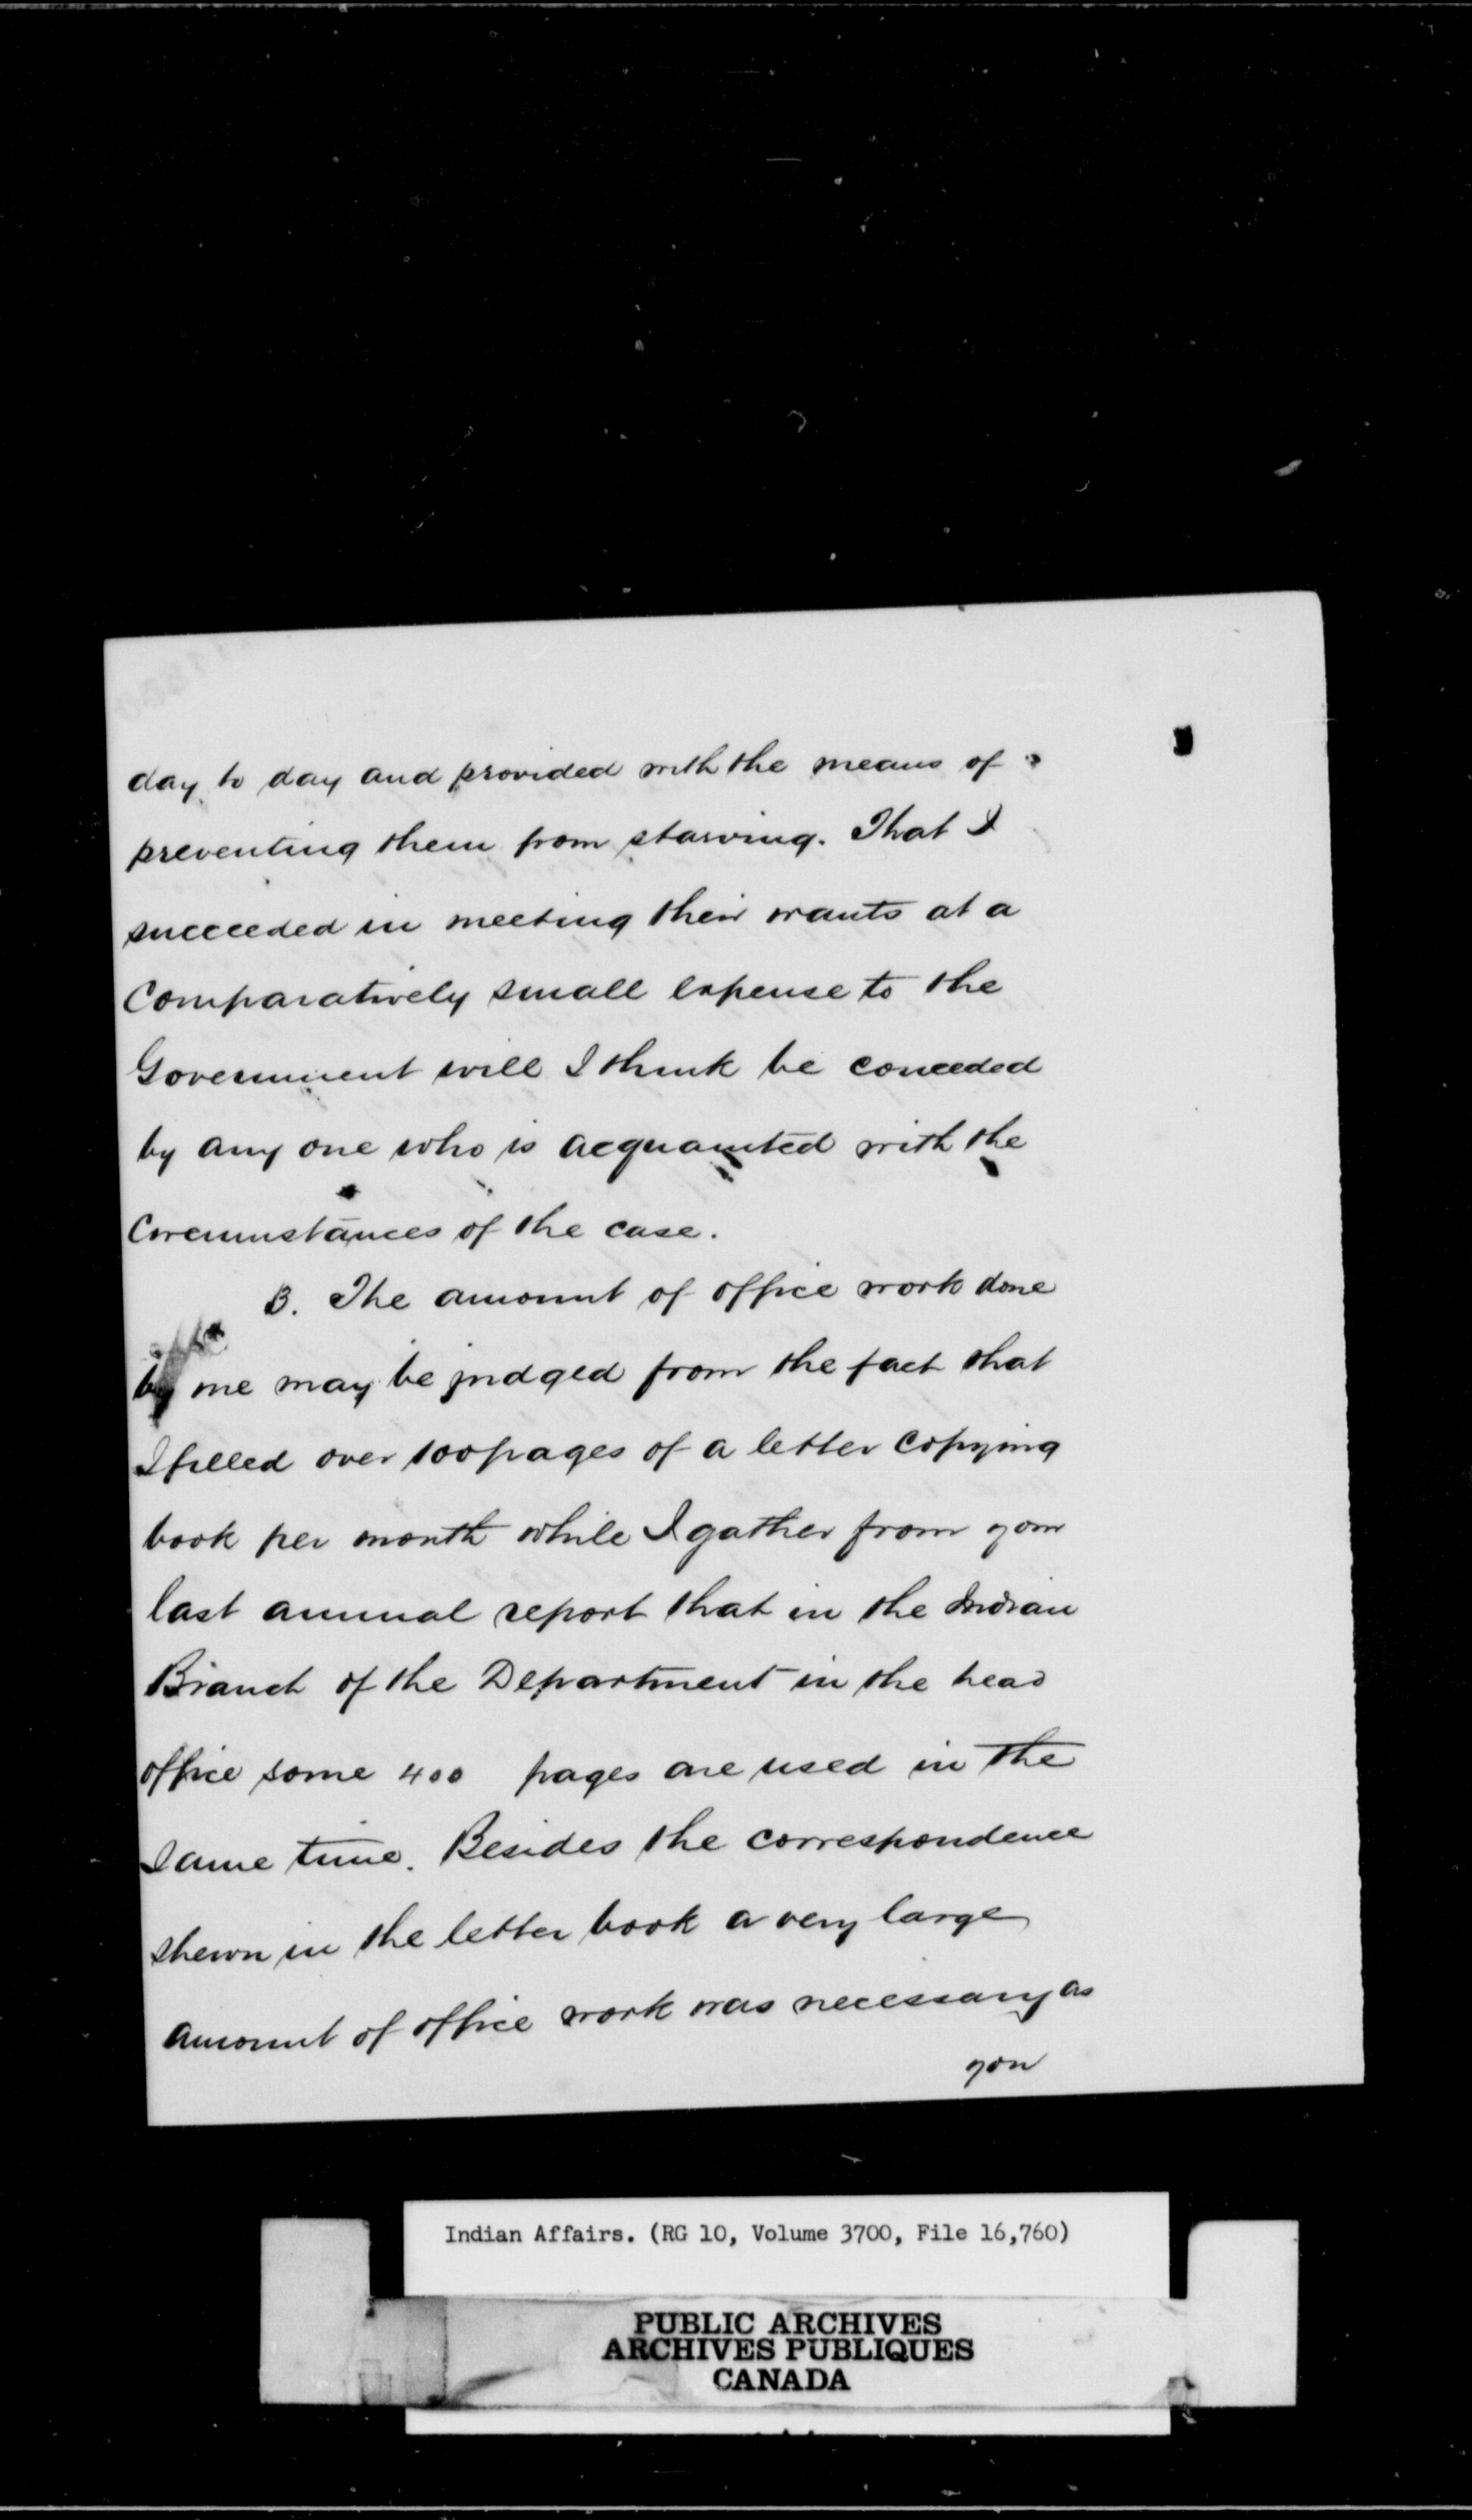 day to day and provided with the means of
preventing them from starving. That I
succeeded in meeting their wants at a
Comparatively small expense to the
Government will I think be conceded
by any one who is acquainted with the
Circumstances of the case.
B. The amount of office work done
by me may be judged from the fact that
I filled over 100 pages of a letter Copying
book per month while I gather from your
last annual report that in the Indian
Branch of the Department in the head
office some 400 pages are used in the
same time. Besides the correspondence
shewn in the letter book a very large
amount of office work was necessary as
you
Indian Affairs. (RG 10, Volume 3700, File 16,760)
PUBLIC ARCHIVES
ARCHIVES PUBLIQUES
CANADA